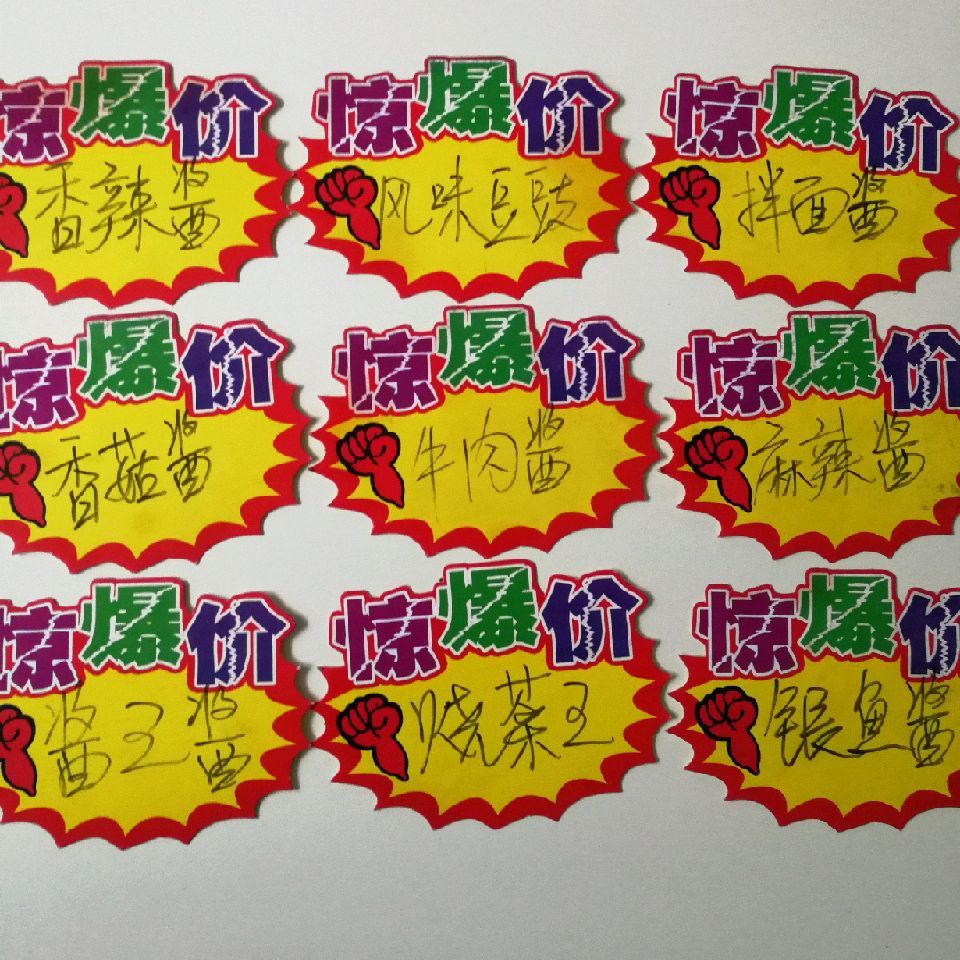 惊爆价
香辣酱
惊爆价
风味豆豉
惊爆价
拌面酱
惊爆价
香菇酱
惊爆价
牛肉酱
惊爆价
麻辣酱
惊爆价
酱王酱
惊爆价
烧茶王
惊爆价
银鱼酱